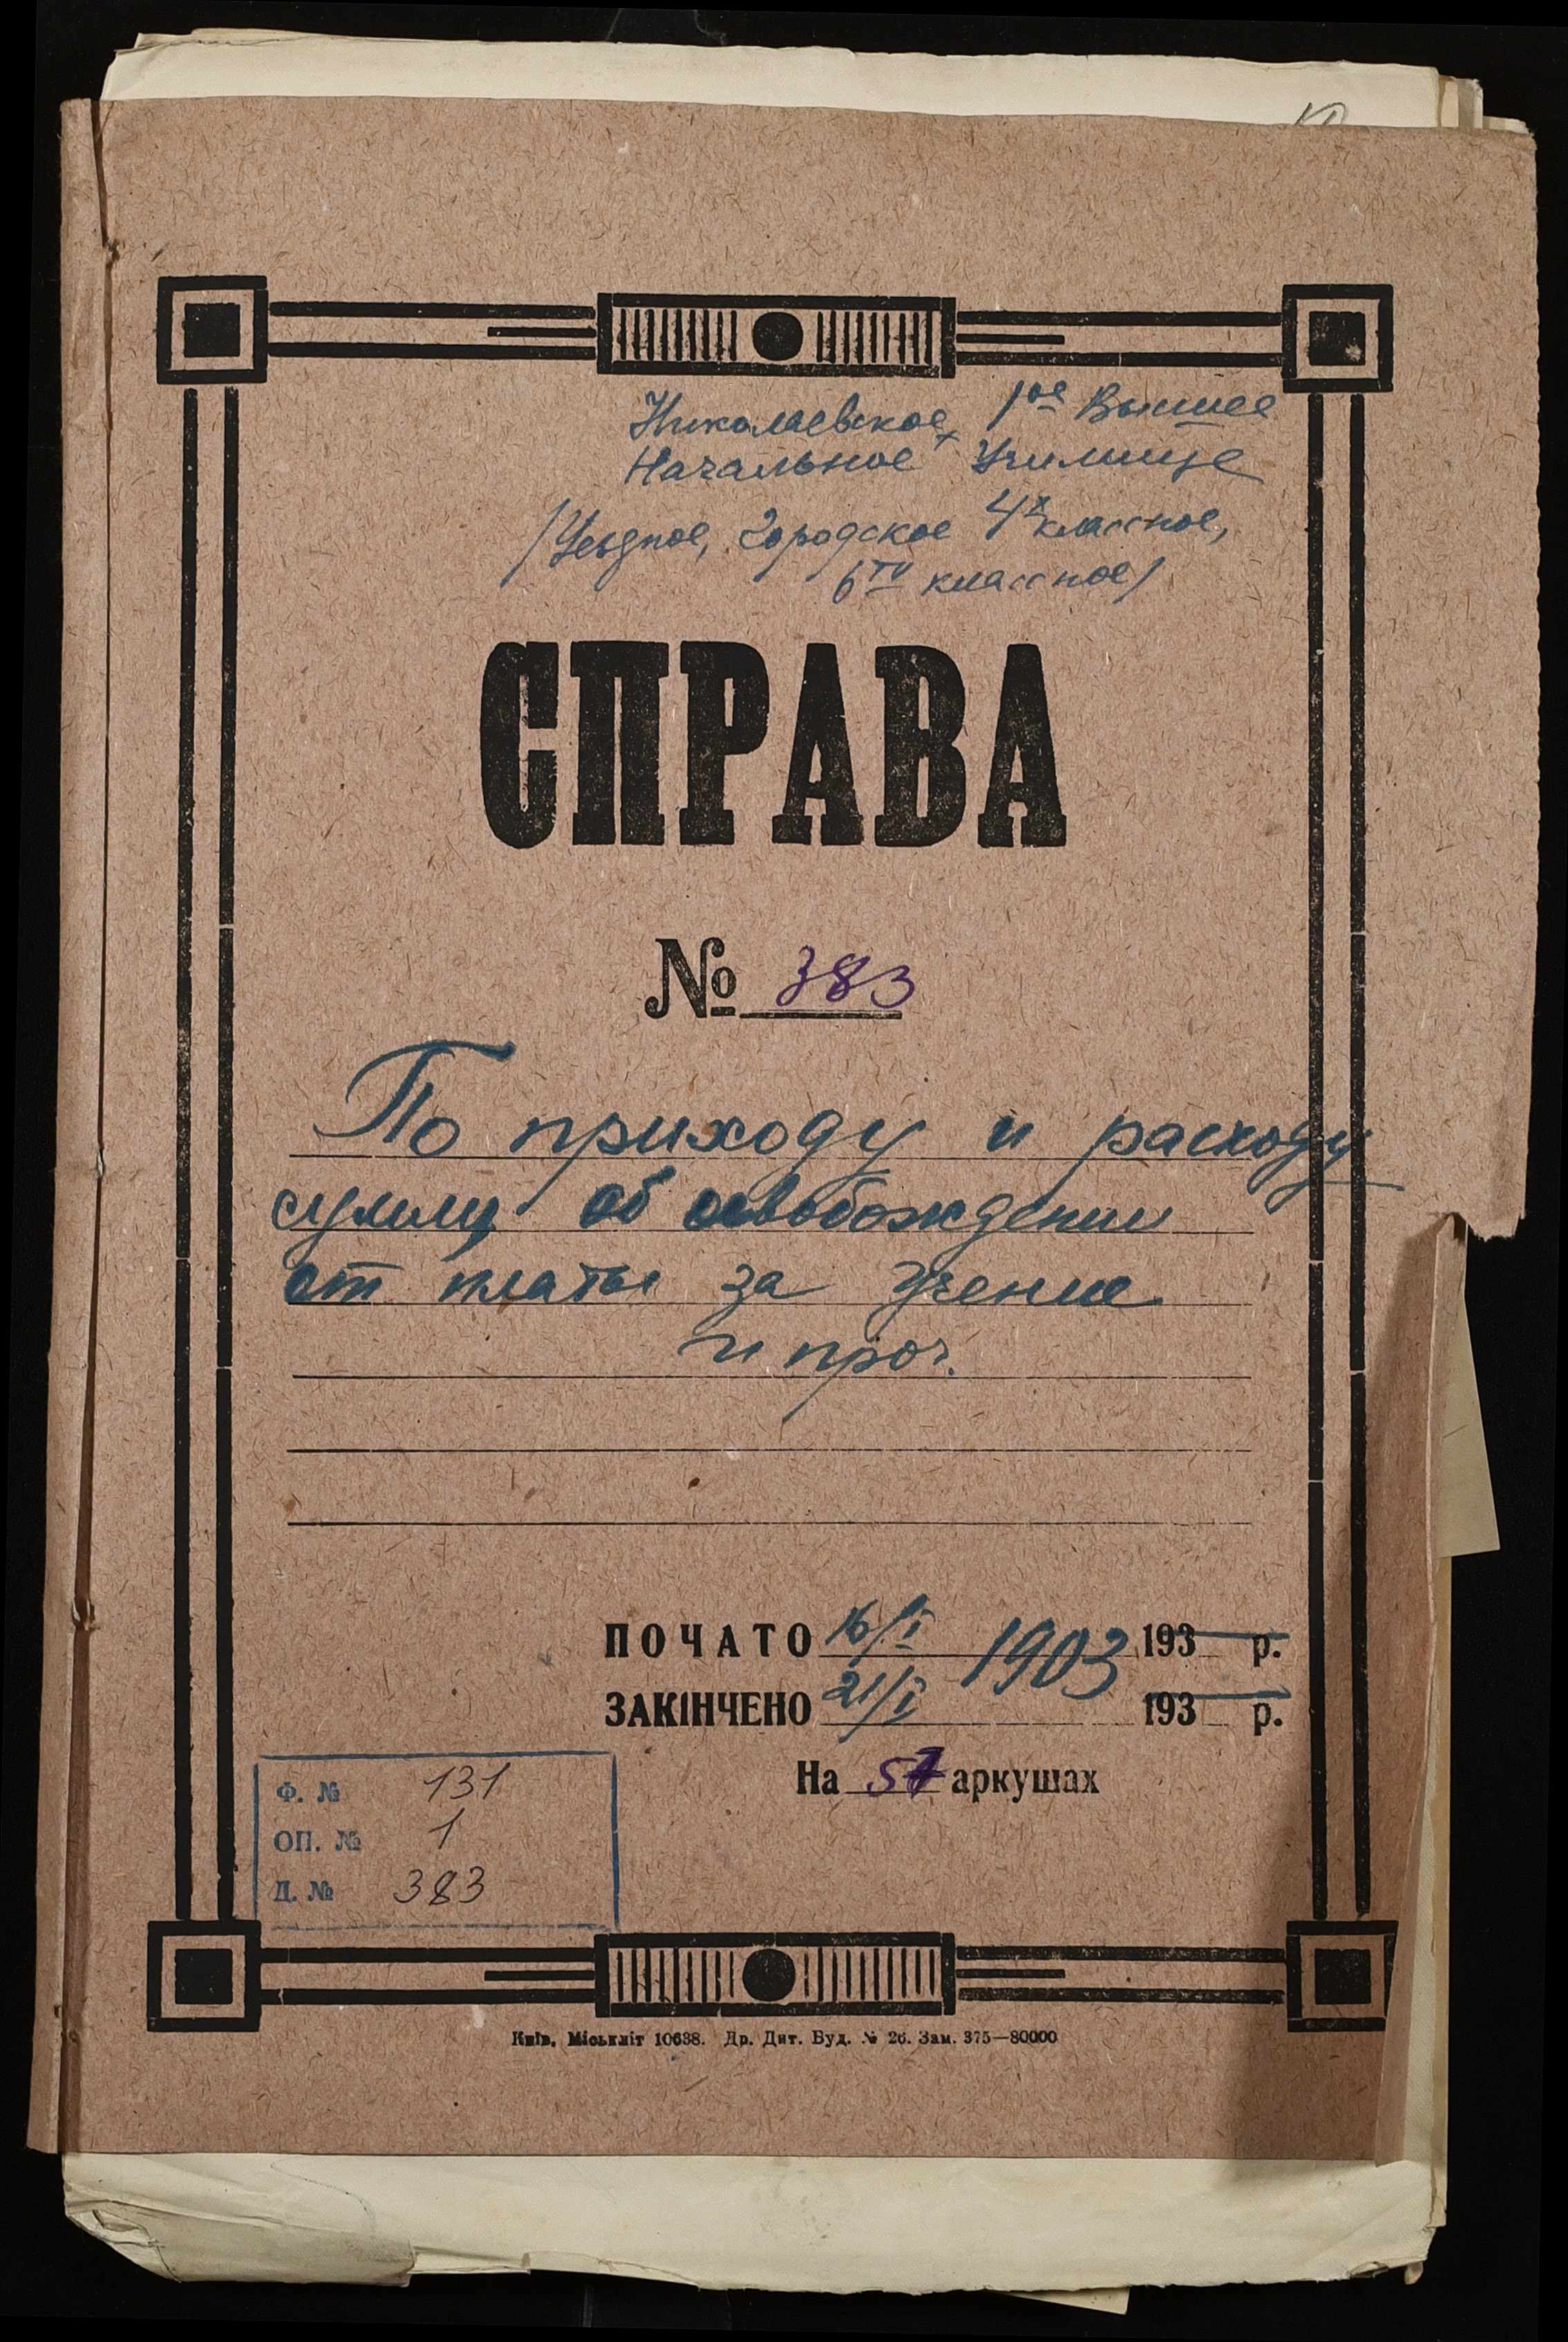 Николаевское 1ое Высшее
Начальное Училище
/Уездное, Городское 4х классное,
6ти классное/
СПРАВА
№ 383
По приходу и расходу
сумм, об освобождении
от платы за учение
и проч.
ПОЧАТО 16/I 1903 193 р.
ЗАКІНЧЕНО 21/I 193 р.
На 57 аркушах
Ф. № 131
ОП. № 1
Д. № 383
Київ, Міськліт 10638. Др. Дит. Буд. № 26. Зам. 375—80000